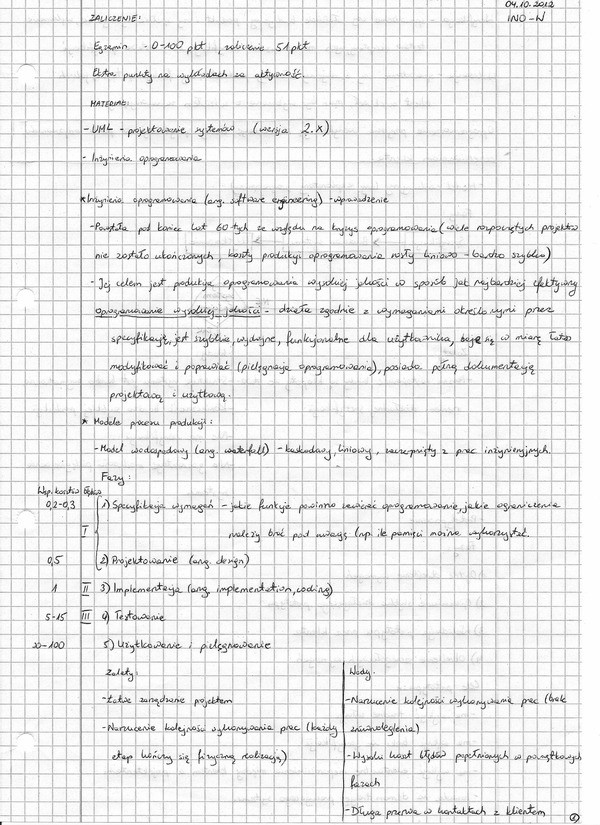 04.10.2012
ZALICZENIE:
INO-W
Egzamin - 0-100 pkt, zaliczenie 51 pkt
Ekstra punkty na wykładach za aktywność.
MATERIAŁ:
- UML - projektowanie systemów (wersja 2.x)
- Inżynieria oprogramowania
* Inżynieria oprogramowania (ang. software engineering) - wprowadzenie
- Powstała pod koniec lat 60-tych ze względu na kryzys oprogramowania (wiele rozpoczętych projektów
nie zostało ukończonych, koszty produkcji oprogramowania rosły liniowo - bardzo szybko)
- Jej celem jest produkcja oprogramowania wysokiej jakości w sposób jak najbardziej efektywny
oprogramowanie wysokiej jakości - działa zgodnie z wymaganiami określonymi przez
specyfikację, jest szybkie, wydajne, funkcjonalne dla użytkownika, daje się w miarę łatwo
modyfikować i poprawiać (pielęgnacja oprogramowania), posiada pełną dokumentację
projektową i użytkową.
* Modele procesu produkcji:
- Model wodospadowy (ang. waterfall) - kaskadowy, liniowy, zaczerpnięty z prac inżynieryjnych.
Fazy:
Wsp. kosztów błędów
0,2-0,3 1) Specyfikacja wymagań - jakie funkcje powinno zawierać oprogramowanie, jakie ograniczenia
I należy brać pod uwagę (np. ile pamięci można wykorzystać.
0,5 2) Projektowanie (ang. design)
1 II 3) Implementacja (ang. implementation, coding)
5-15 III 4) Testowanie
-100 5) Użytkowanie i pielęgnowanie
Zalety:
- Łatwe zarządzanie projektem
- Narzucenie kolejności wykonywania prac (każdy
etap kończy się fizyczną realizacją)
Wady:
- Narzucenie kolejności wykonywania prac (brak
zrównoleglenia)
- Wysoki koszt błędów popełnionych w początkowych
fazach
- Długa przerwa w kontaktach z klientem
1